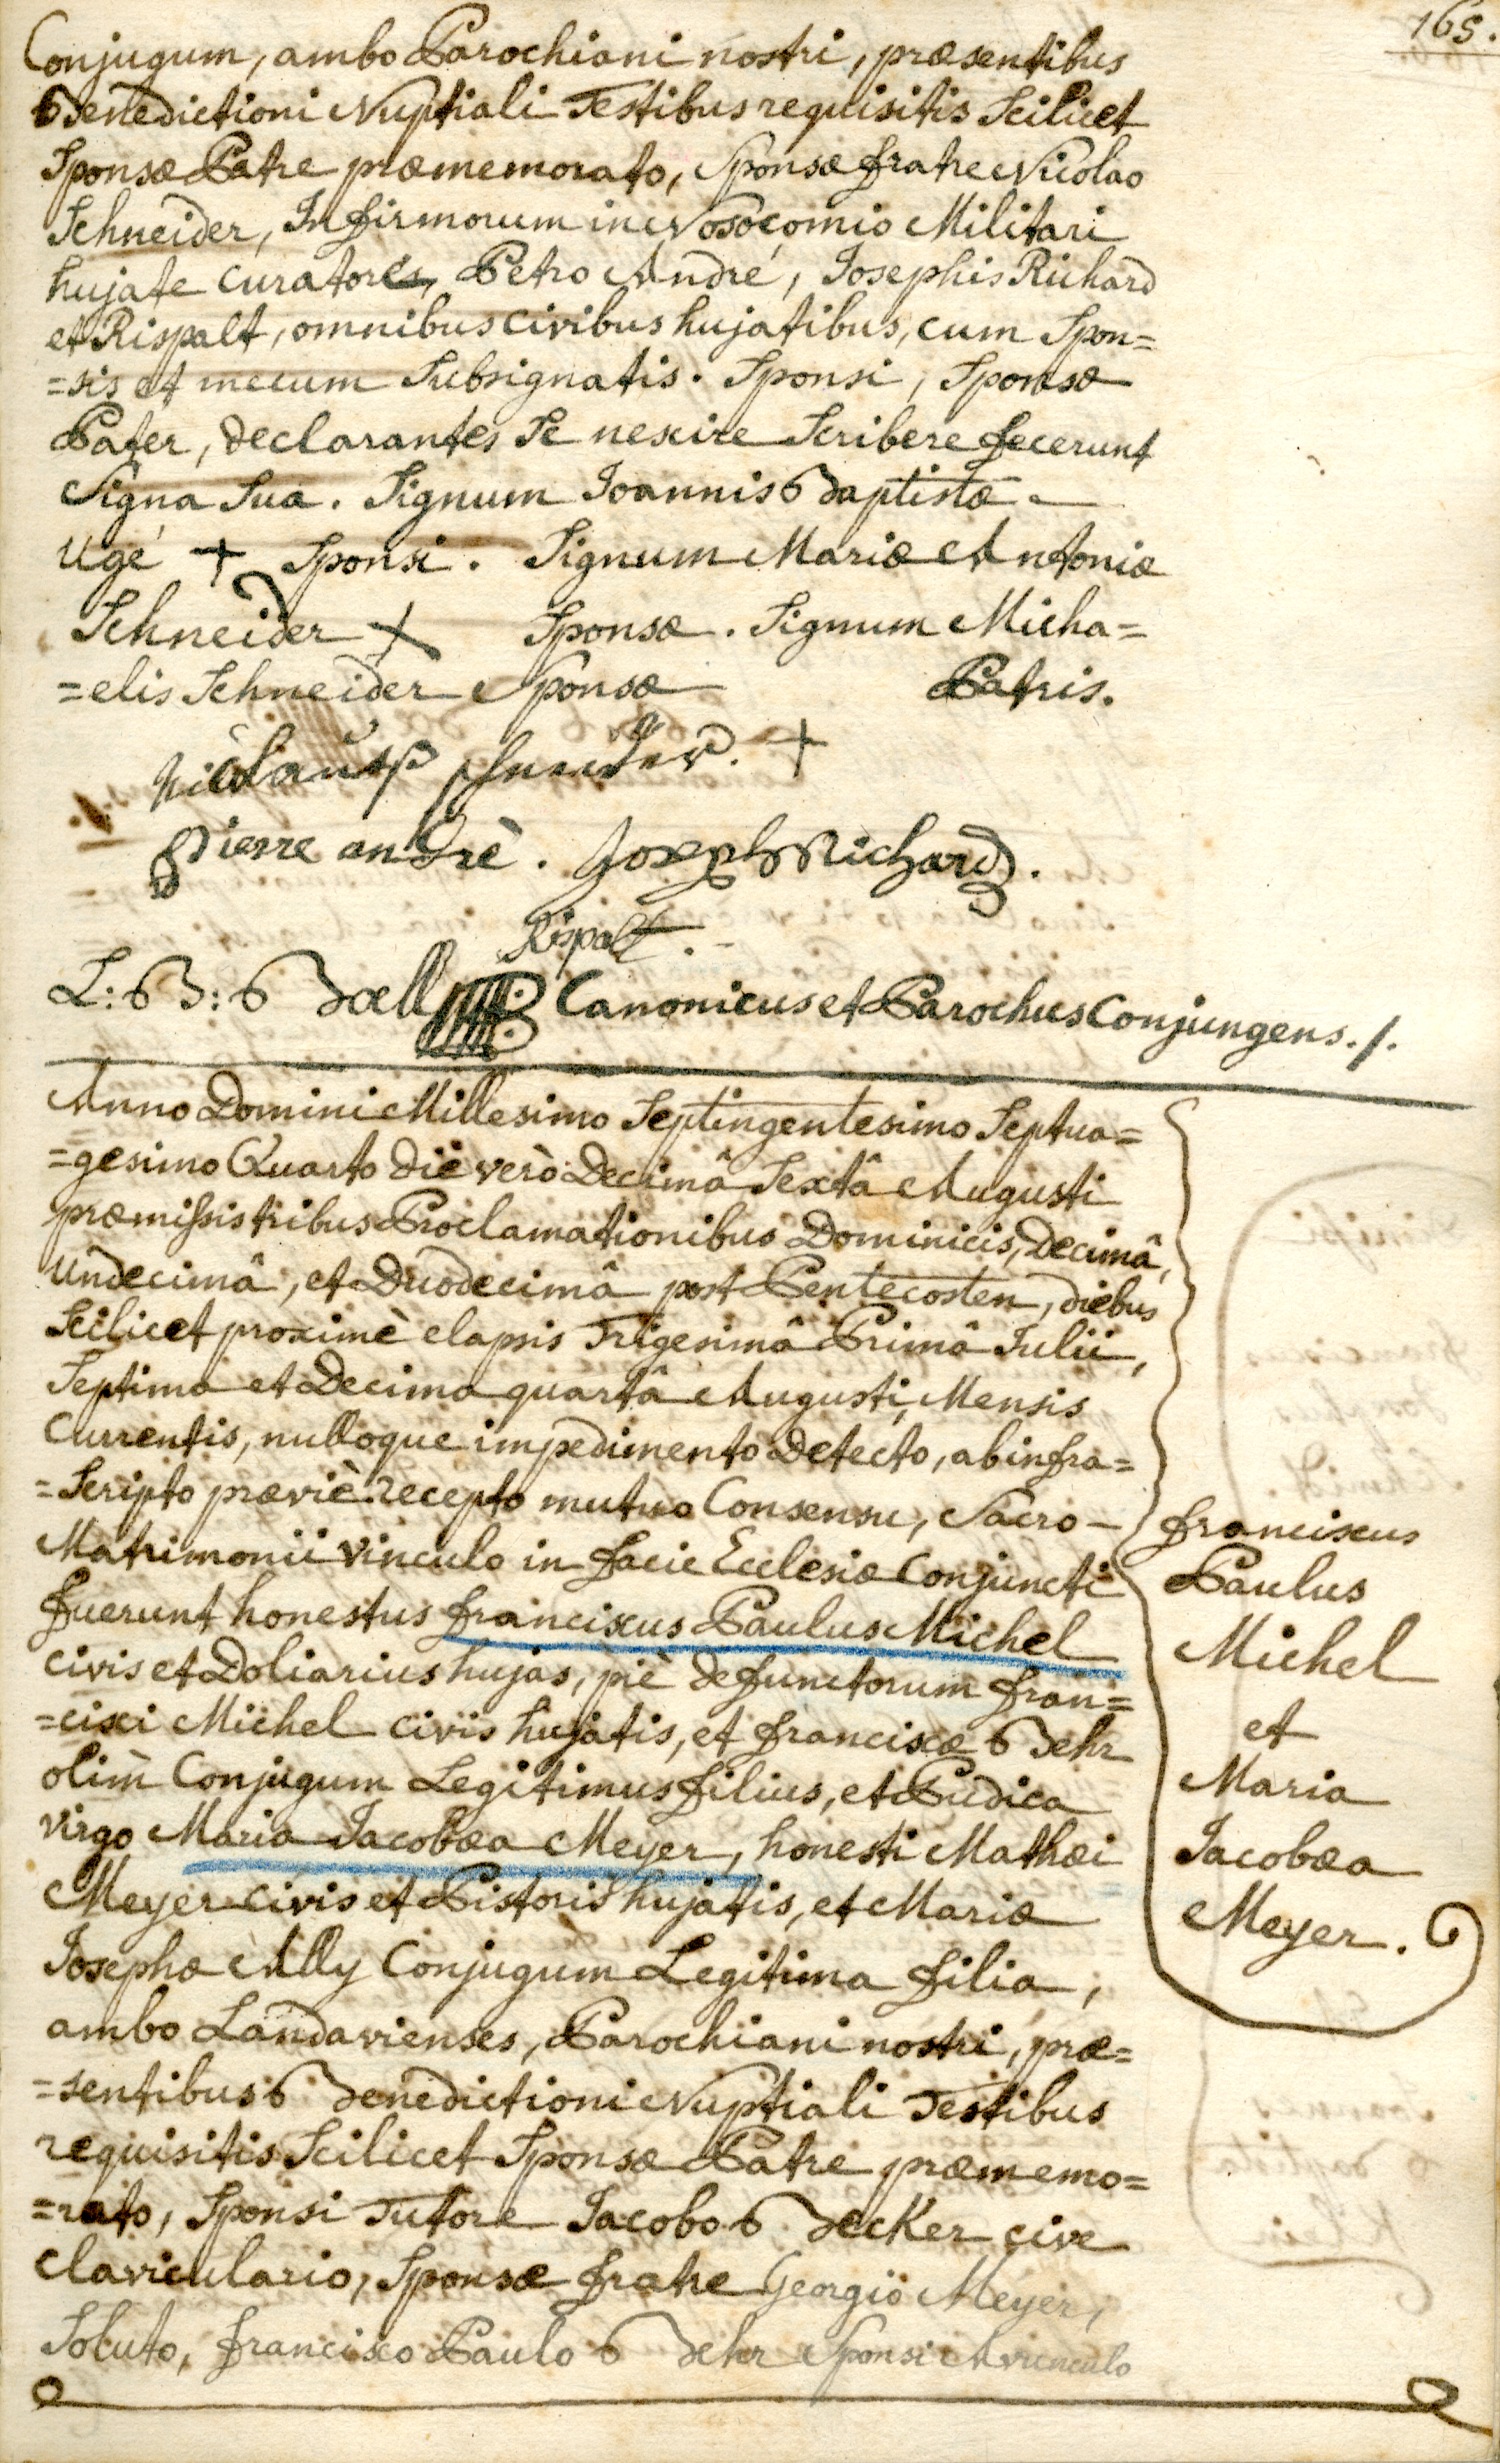 165.
Conjugum, ambo Parochiani nostri, præsentibus
Benedictioni Nuptiali Testibus requisitis Scilicet
Sponsæ Patre præmemorato, Sponsæ fratre Nicolao
Schneider, Infirmorum in Nosocomio Militari
hujate Curatore, Petro André, Josephis Richard
et Rispalt, omnibus civibus hujatibus, cum Spon=
=sis et mecum Subsignatis. Sponsi, Sponsæ
Pater, declarantes Se nescire Scribere fecerunt
Signa Sua. Signum Joannis Baptistæ
Ugé + Sponsi. Signum Mariæ Antoniæ
Schneider + Sponsæ. Signum Micha=
=elis Schneider Sponsæ Patris.
Nicolauss Schneider. +
Pierre andrè. Joseph Richard.
Rispalt.
L: B: Boell Canonicus et Parochus Conjungens./.
Anno Domini Millesimo Septingentesimo Septua=
=gesimo Quarto die verò Decimâ Sextâ Augusti
præmissis tribus Proclamationibus Dominicis, Decimâ,
Undecimâ, et Duodecimâ post Pentecosten, diebus
Scilicet proximè elapsis Trigesimâ Primâ Julii,
Septima et Decima quartâ Augusti, Mensis
Currentis, nulloque impedimento Detecto, ab infra=
=Scripto præviè recepto mutuo Consensu, Sacro
Matrimonii vinculo in facie Ecclesiæ Conjuncti
fuerunt honestus franciscus Paulus Michel
civis et Doliarius hujas, piè defunctorum fran=
=cisci Michel civis hujatis, et franciscæ Behr
olim Conjugum Legitimus filius, et Pudica
virgo Maria Jacobæa Meyer, honesti Mathæi
Meyer civis et Pistoris hujatis, et Mariæ
Josephæ Ally Conjugum Legitima filia,
ambo Landavienses, Parochiani nostri, præ=
=sentibus Benedictioni Nuptiali Testibus
requisitis Scilicet Sponsæ Patre præmemo=
=rato, Sponsi Tutore Jacobo Becker cive
claviculario, Sponsæ fratre Georgio Meyer,
Soluto, francisco Paulo Behr Sponsi Avunculo
franciscus
Paulus
Michel
et
Maria
Jacobæa
Meyer.